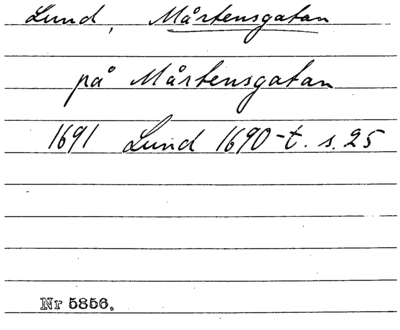 Lund, Mårtensgatan
på Mårtensgatan
1691 Lund 1690-t. s. 25
Nr 5856.